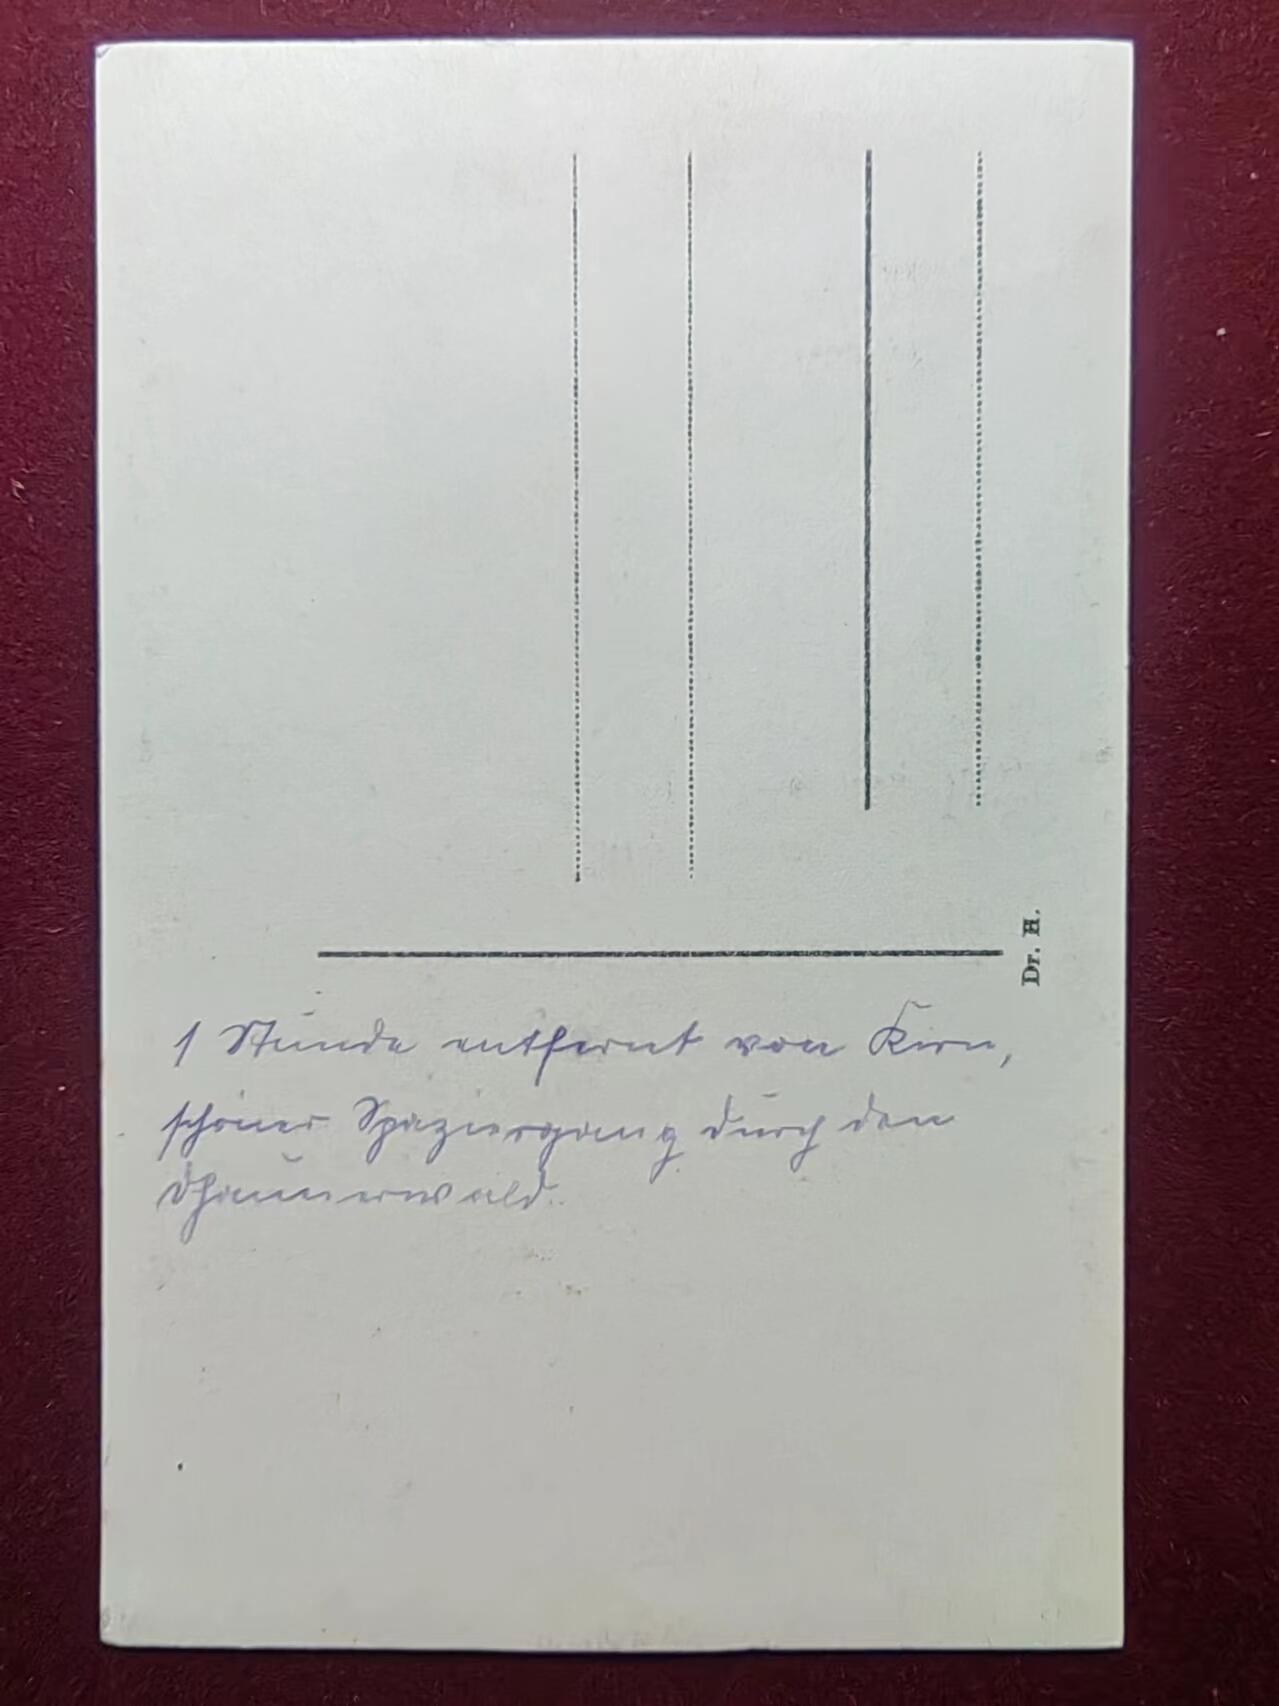 Dr. H.
1 Stunde entfernt von Kirn,
schöner Spaziergang durch den
Dhaunerwald.